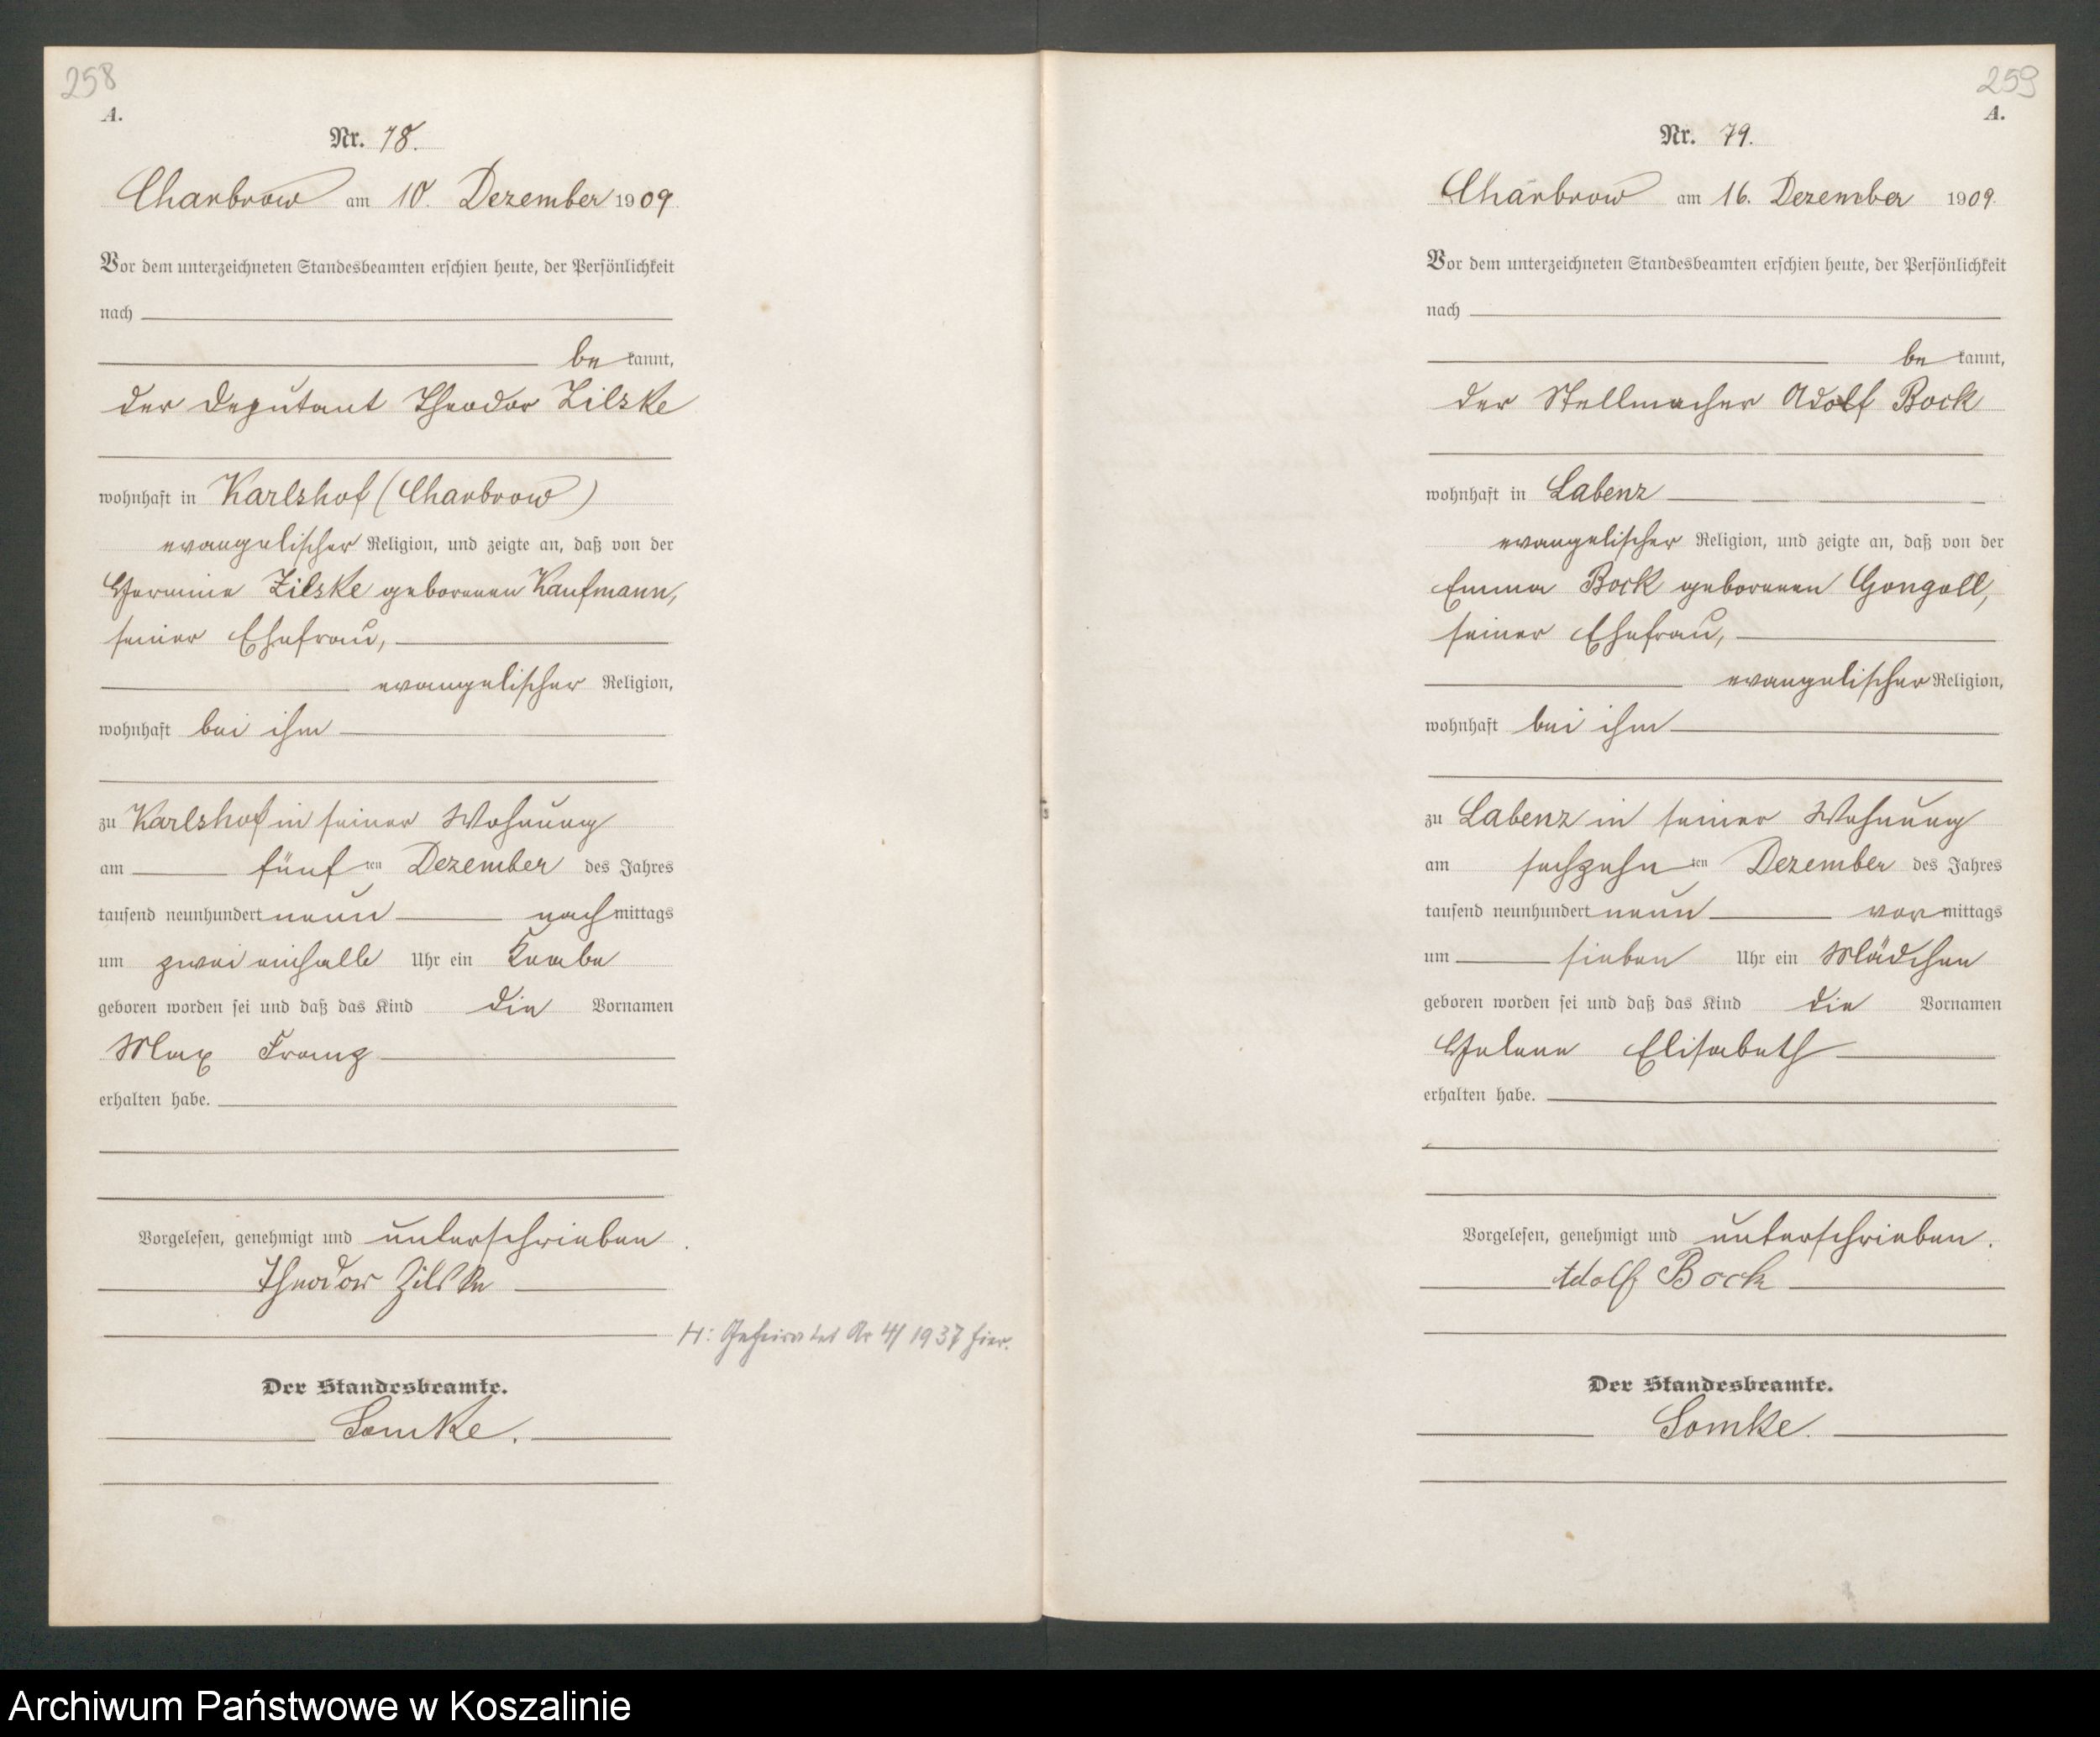 258
A.
Nr. 78.
Charbrow am 10. Dezember 1909
Vor dem unterzeichneten Standesbeamten erschien heute, der Persönlichkeit
nach
be kannt,
der Deputant Theodor Zilske
wohnhaft in Karlshof (Charbrow)
evangelischer Religion, und zeigte an, daß von der
Hermine Zilske geborenen Kaufmann,
seiner Ehefrau,
evangelischer Religion,
wohnhaft bei ihm
zu Karlshof in seiner Wohnung
am fünf ten Dezember des Jahres
tausend neunhundert neun nachmittags
um zwei einhalb Uhr ein Knabe
geboren worden sei und daß das Kind die Vornamen
Max Franz
erhalten habe.
Vorgelesen, genehmigt und unterschrieben.
Theodor Zilske
H: Geheiratet Nr 4/1937 hier.
Der Standesbeamte.
Lomke.
259
A.
Nr. 79.
Charbrow am 16. Dezember 1909.
Vor dem unterzeichneten Standesbeamten erschien heute, der Persönlichkeit
nach
be kannt,
der Stellmacher Adolf Bock
wohnhaft in Labenz
evangelischer Religion, und zeigte an, daß von der
Emma Bock geborenen Gongoll,
seiner Ehefrau,
evangelischer Religion,
wohnhaft bei ihm
zu Labenz in seiner Wohnung
am sechzehn ten Dezember des Jahres
tausend neunhundert neun vormittags
um sieben Uhr ein Mädchen
geboren worden sei und daß das Kind die Vornamen
Helene Elisabeth
erhalten habe.
Vorgelesen, genehmigt und unterschrieben.
Adolf Bock
Der Standesbeamte.
Lomke.
Archiwum Państwowe w Koszalinie